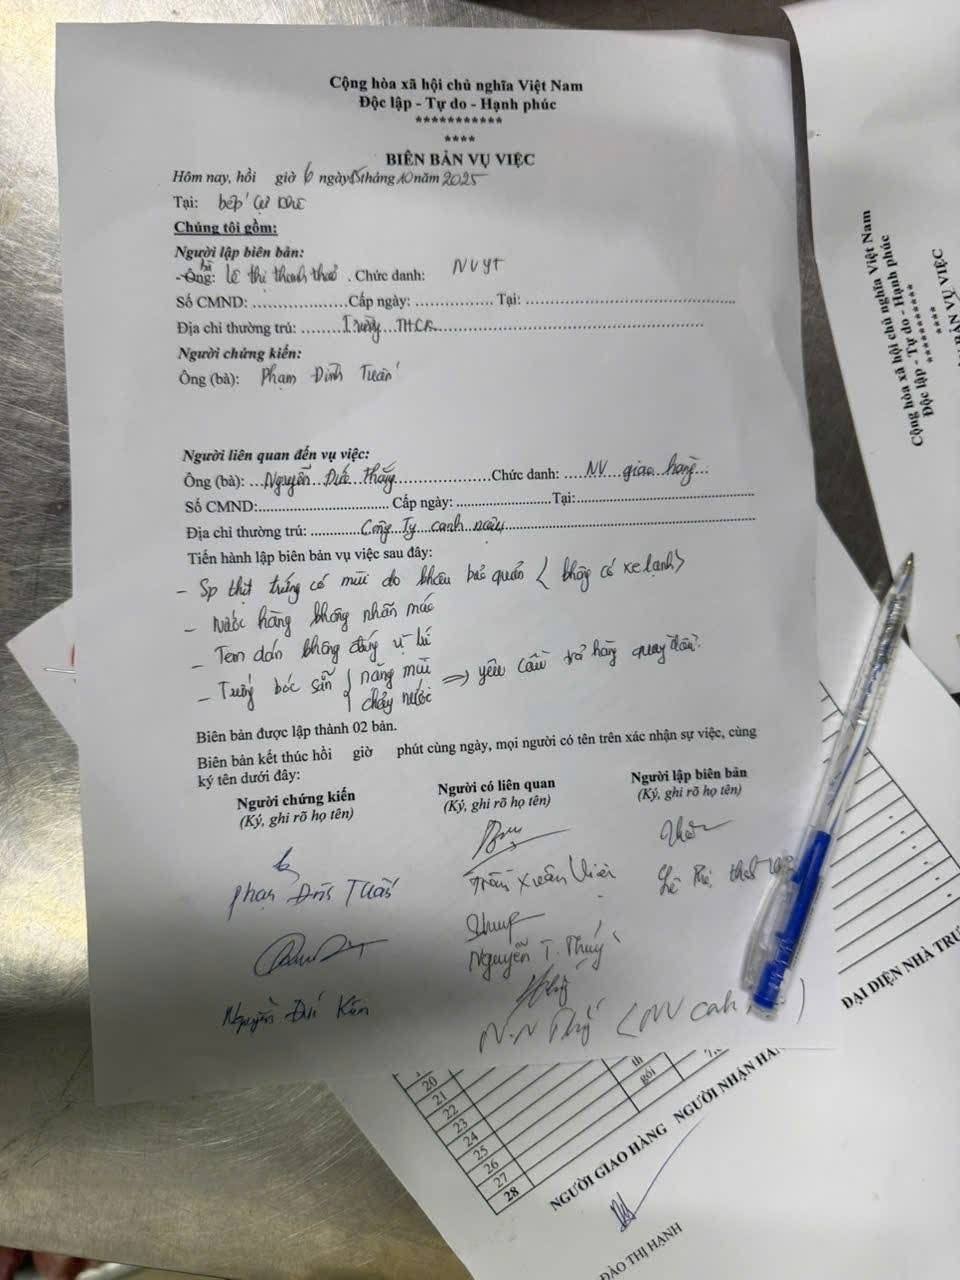 Cộng hòa xã hội chủ nghĩa Việt Nam
Độc lập - Tự do - Hạnh phúc
***********
****
BIÊN BẢN VỤ VIỆC
Hôm nay, hồi giờ 6 ngày 15 tháng 10 năm 2025
Tại: bếp Cự Khê
Chúng tôi gồm:
Người lập biên bản:
bà
- Ông: Lê thị thanh thảo . Chức danh: NVYT
Số CMND: .................... Cấp ngày: ................ Tại: ................................
Địa chỉ thường trú: ........ Trường THCS ................................
Người chứng kiến:
Ông (bà): Phạm Đình Tuấn
Người liên quan đến vụ việc:
Ông (bà): ... Nguyễn Đức Thắng ................ Chức danh: ... NV giao hàng ...
Số CMND: ............................ Cấp ngày: .................... Tại: ................................
Địa chỉ thường trú: ............ Công Ty canh ................................
Tiến hành lập biên bản vụ việc sau đây:
- Sp thịt trứng có mùi do khâu bảo quản < không có xe lạnh >
- Nước hàng không nhãn mác
- Tem dán không đúng vị trí
- Trứng bóc sẵn { nặng mùi
chảy nước => yêu cầu trả hàng quay đầu.
Biên bản được lập thành 02 bản.
Biên bản kết thúc hồi giờ phút cùng ngày, mọi người có tên trên xác nhận sự việc, cùng
ký tên dưới đây:
Người chứng kiến Người có liên quan Người lập biên bản
(Ký, ghi rõ họ tên) (Ký, ghi rõ họ tên) (Ký, ghi rõ họ tên)
Phạm Đình Tuấn Trần Xuân Lê Thị
Nguyễn T. Thúy
Nguyễn Đức
(NV
Cộng hòa xã hội chủ nghĩa Việt Nam
Độc lập - Tự do - Hạnh phúc
***********
****
BẢN VỤ VIỆC
th
gói
20
21
22
23
24
25
26
27
28
NGƯỜI GIAO HÀNG NGƯỜI NHẬN HÀN
ĐẠI DIỆN NHÀ TRƯ
ĐÀO THỊ HẠNH